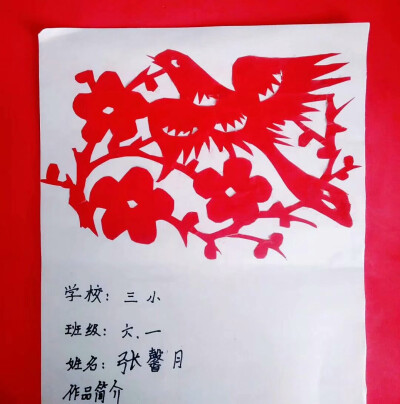 学校：三小
班级：六.一
姓名：张馨月
作品简介